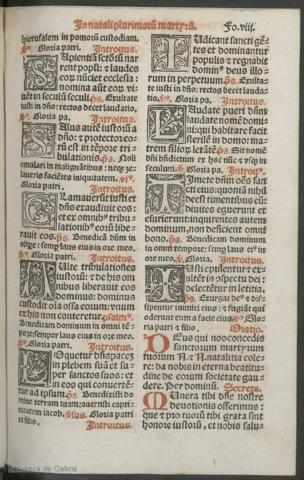 In natali plurimorũ martyrũ. Fo.viij.
hierusalem in pomorũ custodiam.
p̃s. Gloria patri. Introitus.
SApientiã sctõrũ nar
rent populi: ⁊ laudes
eorũ nũciet ecclesia:
nomina aũt eorũ vi
uẽt in seculũ seculi. p̃s. Exultate
iusti in dño: rectos decet laudatio.
p̃s. Gloria pa. Introitus.
SAlus autẽ iustorũ a
dño: ⁊ protector eo-
rũ est in tẽpore tri
bulationis. p̃s. Noli
emulari in malignãtibus: neqꝫ ze-
laueris faciẽtes iniquitatem. v̾s.
Gloria patri. Introitus.
CLamauerũt iusti et
dñs exaudiuit eos:
et ex omnibꝰ tribu-
lationibꝰ eorũ libe-
rauit eos. p̃s. Benedicã dñm in
oĩ tpe: semp̱ laus eius in ore meo.
p̃s. Gloria patri. Introitus.
MUlte tribulationes
iustorũ: ⁊ de his om
nibus liberauit eos
dominus: dominus
custodit oĩa ossa eorum: vnum
ex his non conteretur. psalmꝰ.
Benedicam dominum in omni tẽ-
pore: semper laus eius in ore meo.
p̃s. Gloria patri. Introitus.
LOquetur dñs pacẽ
in plebem suã et su-
per sanctos suos: et
in eos qui conuertẽ-
tur ad ipsum. p̃s. Benedixisti do-
mine terram tuam: auertisti capti-
uitatem iacob. v̾sus. Gloria patri
et filio. Introitus.
IUdicant sancti gẽn-
tes et dominantur
populis ⁊ regnabit
dominꝰ deus illo-
rum in perpetuum. p̃s. Exulta-
te iusti in dño: rectos decet laudatio.
p̃s. Gloria pa. Introitus.
LAudate pueri dñm
laudate nomẽ domi-
ni: qui habitare facit
sterilẽ in domo: ma-
trem filioꝝ letãtẽ. p̃s. Sit nomẽ
dñi bñdictum ex hoc nũc ⁊ vsqꝫ in
seculum. p̃s. Gloria pa. Introitꝰ.
TImete dñm oẽs san
cti eius: quoniã nihil
deest timentibus eũ:
diuites eguerunt et
esurierunt: inquirentes autem
dominum, non deficient omni
bono. p̃s. Benedicam dominum
in omni tempore: semp̱ laus eiꝰ in
ore meo. v̾. Gloria. Introitus.
IUsti epulentur et ex
ultẽt in cõspectu dei:
delectẽtur in letitia.
p̃s. Exurgat deꝰ ⁊ dis
sipentur inimici eius: ⁊ fugiãt qui
oderunt eum a facie eius. v̾s. Glo-
ria patri ⁊ filio. Oratio.
DEus qui nos concedis
sanctorum martyrum
tuorum N. ⁊ N. natalitia cole-
re: da nobis in eterna beatitudi-
ne de eorum societate gau-
dere. Per dominũ. Secreta.
MUnera tibi dñe nostre
deuotionis offerimus:
que ⁊ pro tuorũ tibi grata sint
honore iustorũ, et nobis salu-
Biblioteca de Galicia